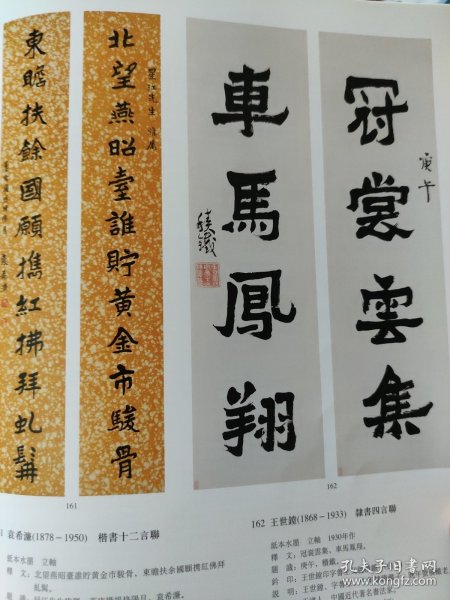 冠裳雲集
庚午
車馬鳳翔
積鐵
北望燕昭臺誰貯黃金市駿骨
東瞻扶餘國願攜紅拂拜虬髯
161
162
袁希濂(1878-1950) 楷書十二言聯
紙本水墨 立軸
釋 文:北望燕昭臺誰貯黃金市駿骨、東瞻扶余國願攜紅拂拜虬髯。
162 王世鏜(1868-1933) 隸書四言聯
紙本水墨 立軸 1930年作
釋 文:冠裳雲集,車馬鳳翔。
題 識:庚午,積鐵。
鈐 印:王世鏜印
說 明:王世鏜,字
孔夫子旧书网